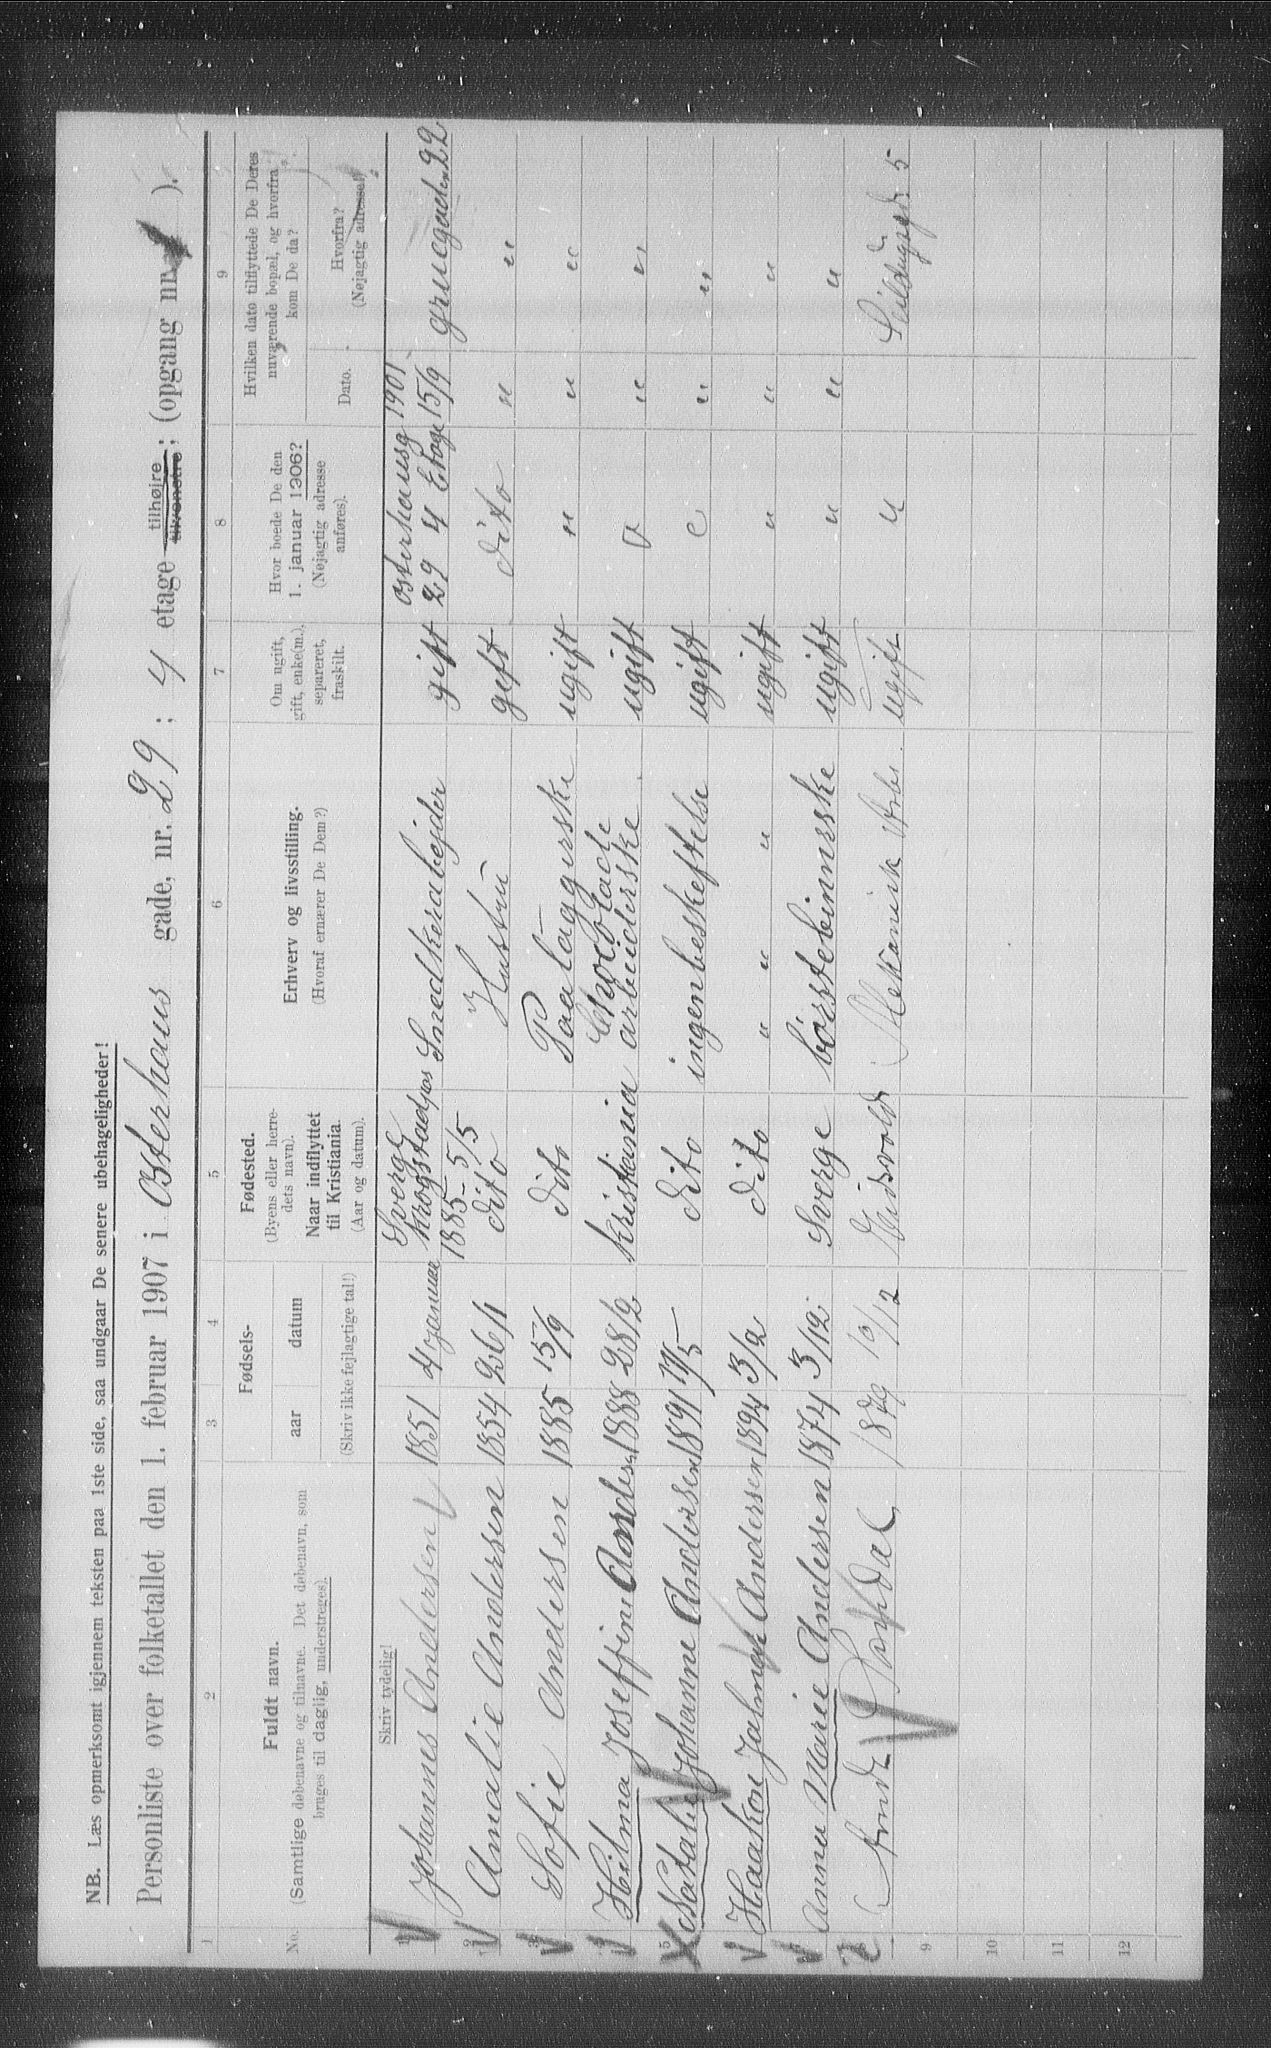 NB. Læs opmerksomt igjennem teksten paa 1ste side, saa undgaar De senere ubehageligheder!
Personliste over folketallet den 1. februar 1907 i Osterhaus gade, nr. 29; 4 etage tilhøjre tilvenstre; (opgang nr. ).
1 2 3 4 5 6 7 8 9
No.
Fuldt navn.
(Samtlige døbenavne og tilnavne. Det døbenavn, som
bruges til daglig, understreges).
Fødsels-
aar datum
(Skriv ikke fejlagtige tal!)
Fødested.
(Byens eller herre-
dets navn).
Naar indflyttet
til Kristiania.
(Aar og datum).
Erhverv og livsstilling.
(Hvoraf ernærer De Dem?)
Om ugift,
gift, enke(m.),
separeret,
fraskilt.
Hvor boede De den
1. januar 1906?
(Nøjagtig adresse
anføres).
Hvilken dato tilflyttede De Deres
nuværende bopæl, og hvorfra
kom De da?
Dato.
Hvorfra?
(Nøjagtig adresse!)
Skriv tydelig!
1 Johannes Andersen 1851 4 januar Sverge Krogstad 1885 5/5 Smedkerabejder gift Osterhausg 29 4 Etage 1901 15/9 gruegaden 22
2 Amalie Andersen 1854 26/1 dito Hustru gift dito " "
3 Sofie Andersen 1885 15/9 dito Paalæggerske ugift " " "
4 Hilma Joseffine Andersen 1888 28/2 Kristiania Chocolade arbeiderske ugift " " "
5 Natalie Johanne Andersen 1891 11/5 dito ingenbeskeftelse ugift " " "
6 Haakon Jalmar Andersen 1894 3/2 dito " " " ugift " " "
7 Anna Marie Andersen 1874 3/12 Sverge börstebinnerske ugift " " "
8 1879 10/12 Eidsvold Mekanisk Arbe. ugift " 5
9
10
11
12